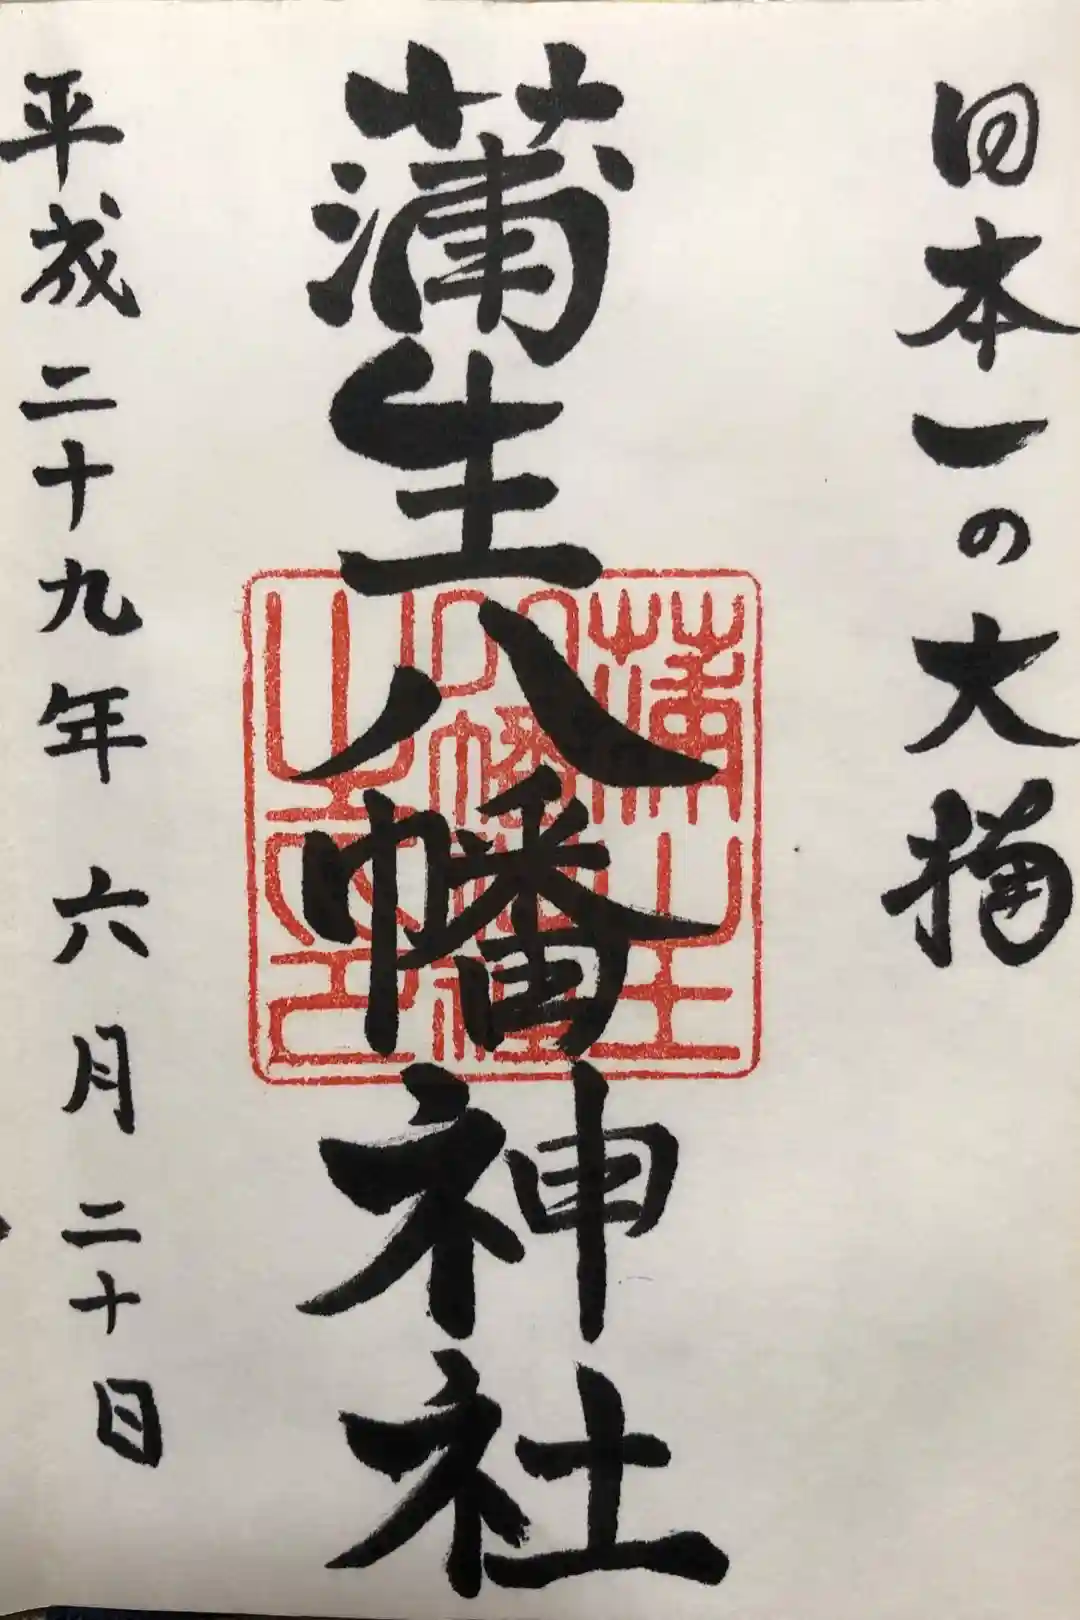 日本一の大楠
蒲生八幡神社
平成二十九年六月二十日
蒲生
八幡神社
之印